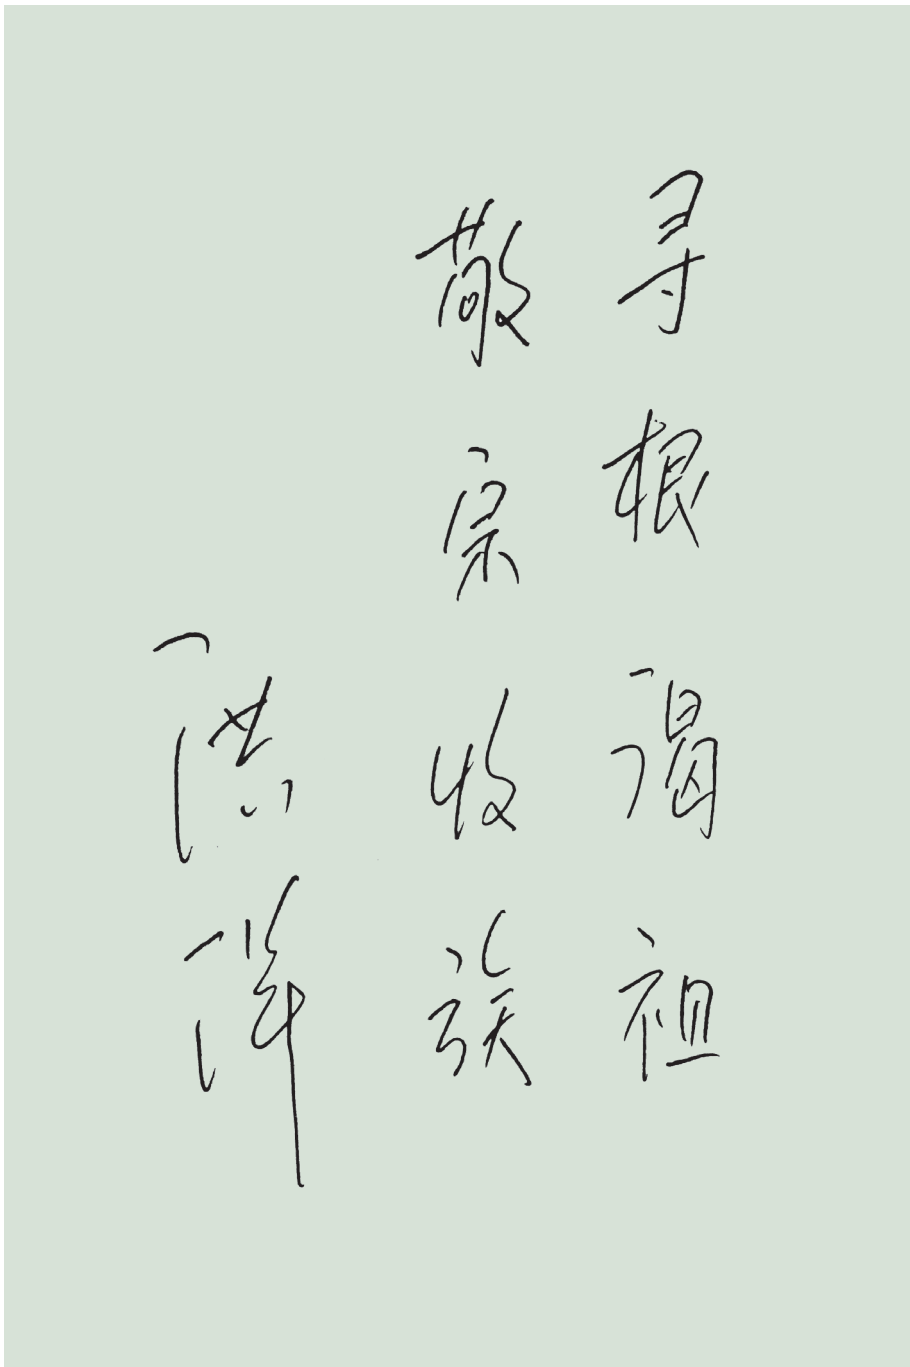 寻根谒祖
敬宗收族
洪洋